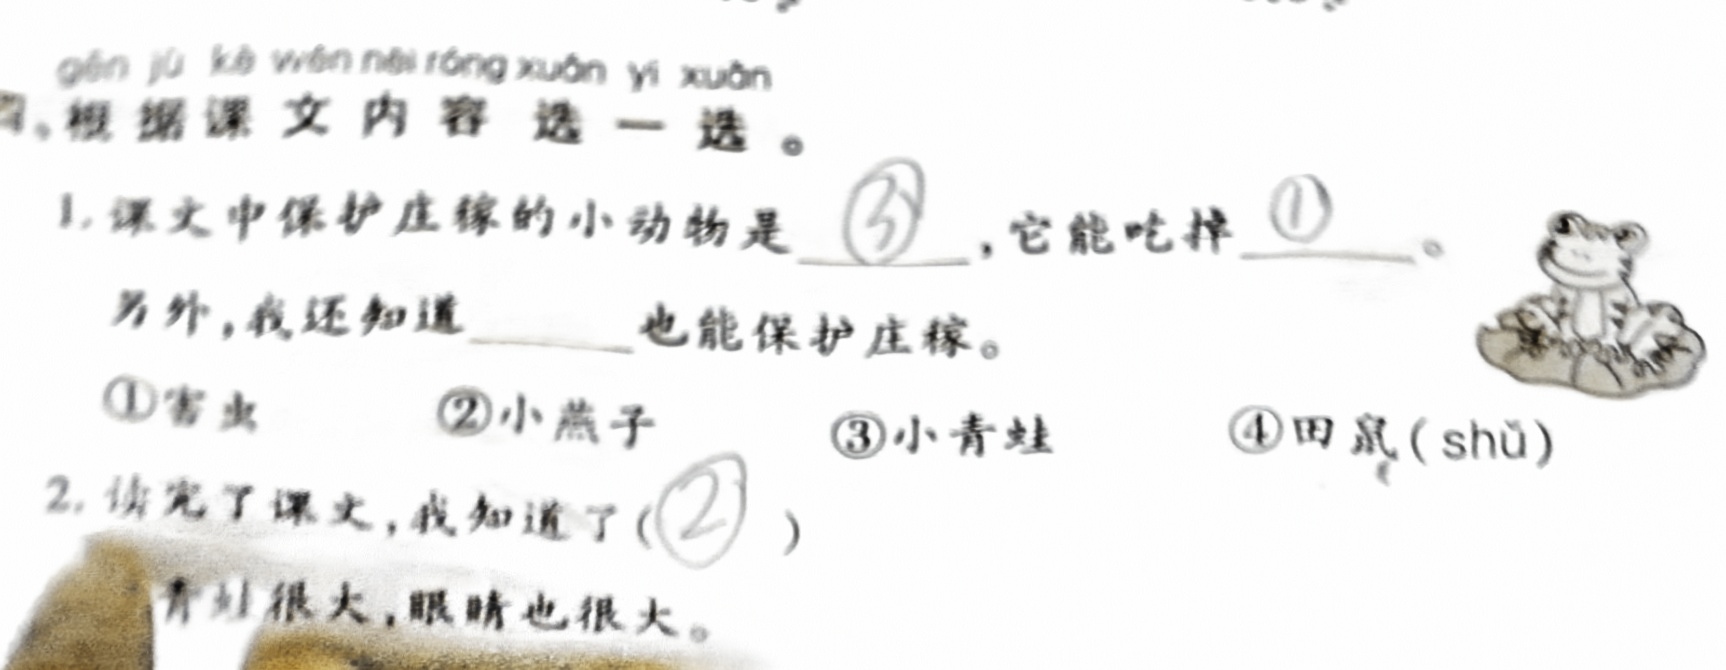 gēn jù kè wén nèi róng xuǎn yi xuǎn
、根据课文内容选一选。
1. 课文中保护庄稼的小动物是 ③ ,它能吃掉 ① 。
另外,我还知道____也能保护庄稼。
①害虫 ②小燕子 ③小青蛙 ④田鼠(shǔ)
2. 读完了课文,我知道了( ② )
青蛙很大,眼睛也很大。